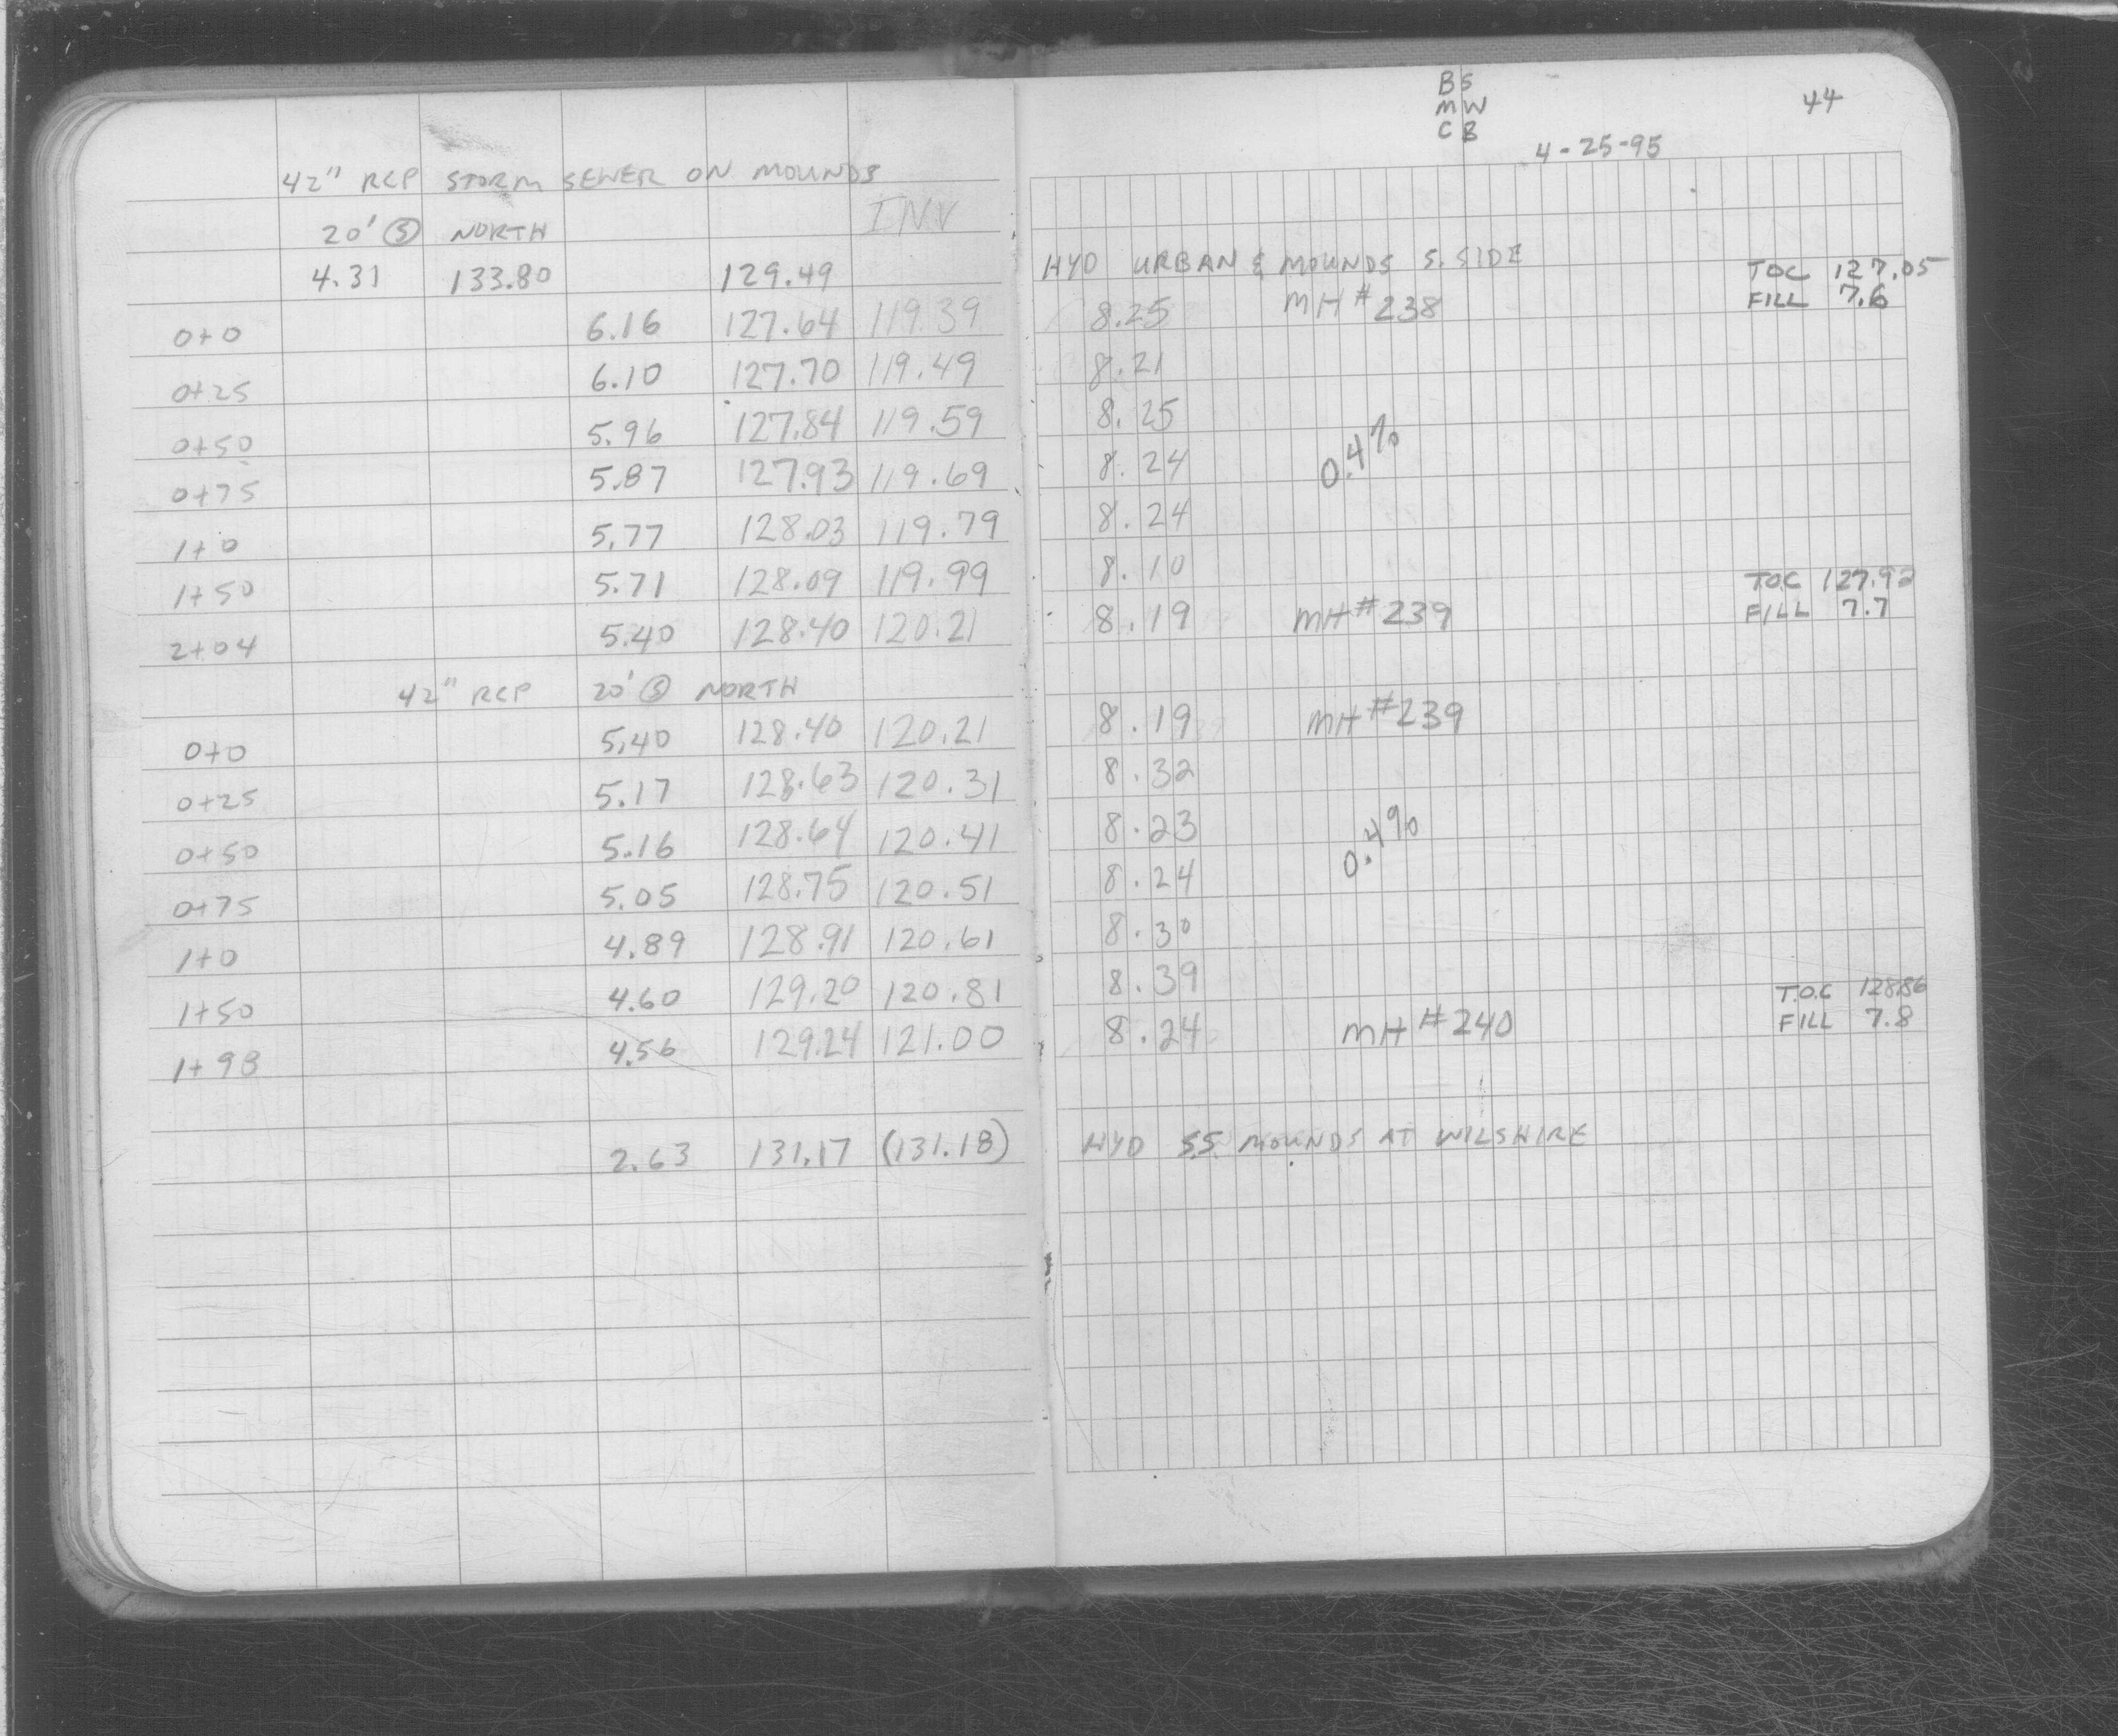 42" RCP STORM SEWER ON MOUNDS
20' Ⓢ NORTH INV
4.31 133.80 129.49
0+0 6.16 127.64 119.39
0+25 6.10 127.70 119.49
0+50 5.96 127.84 119.59
0+75 5.87 127.93 119.69
1+0 5.77 128.03 119.79
1+50 5.71 128.09 119.99
2+04 5.40 128.40 120.21
42" RCP 20' Ⓢ NORTH
0+0 5.40 128.40 120.21
0+25 5.17 128.63 120.31
0+50 5.16 128.64 120.41
0+75 5.05 128.75 120.51
1+0 4.89 128.91 120.61
1+50 4.60 129.20 120.81
1+98 4.56 129.24 121.00
2.63 131.17 (131.18)
BS
MW
CB
44
4-25-95
HYD URBAN & MOUNDS S. SIDE TOC 127.05
8.25 MH #238 FILL 7.6
8.21
8.25
8.24 0.4%
8.24
8.10 T.O.C 127.92
8.19 MH #239 FILL 7.7
8.19 MH #239
8.32
8.23 0.4%
8.24
8.30
8.39 T.O.C 128.86
8.24 MH #240 FILL 7.8
HYD S.S. MOUNDS AT WILSHIRE